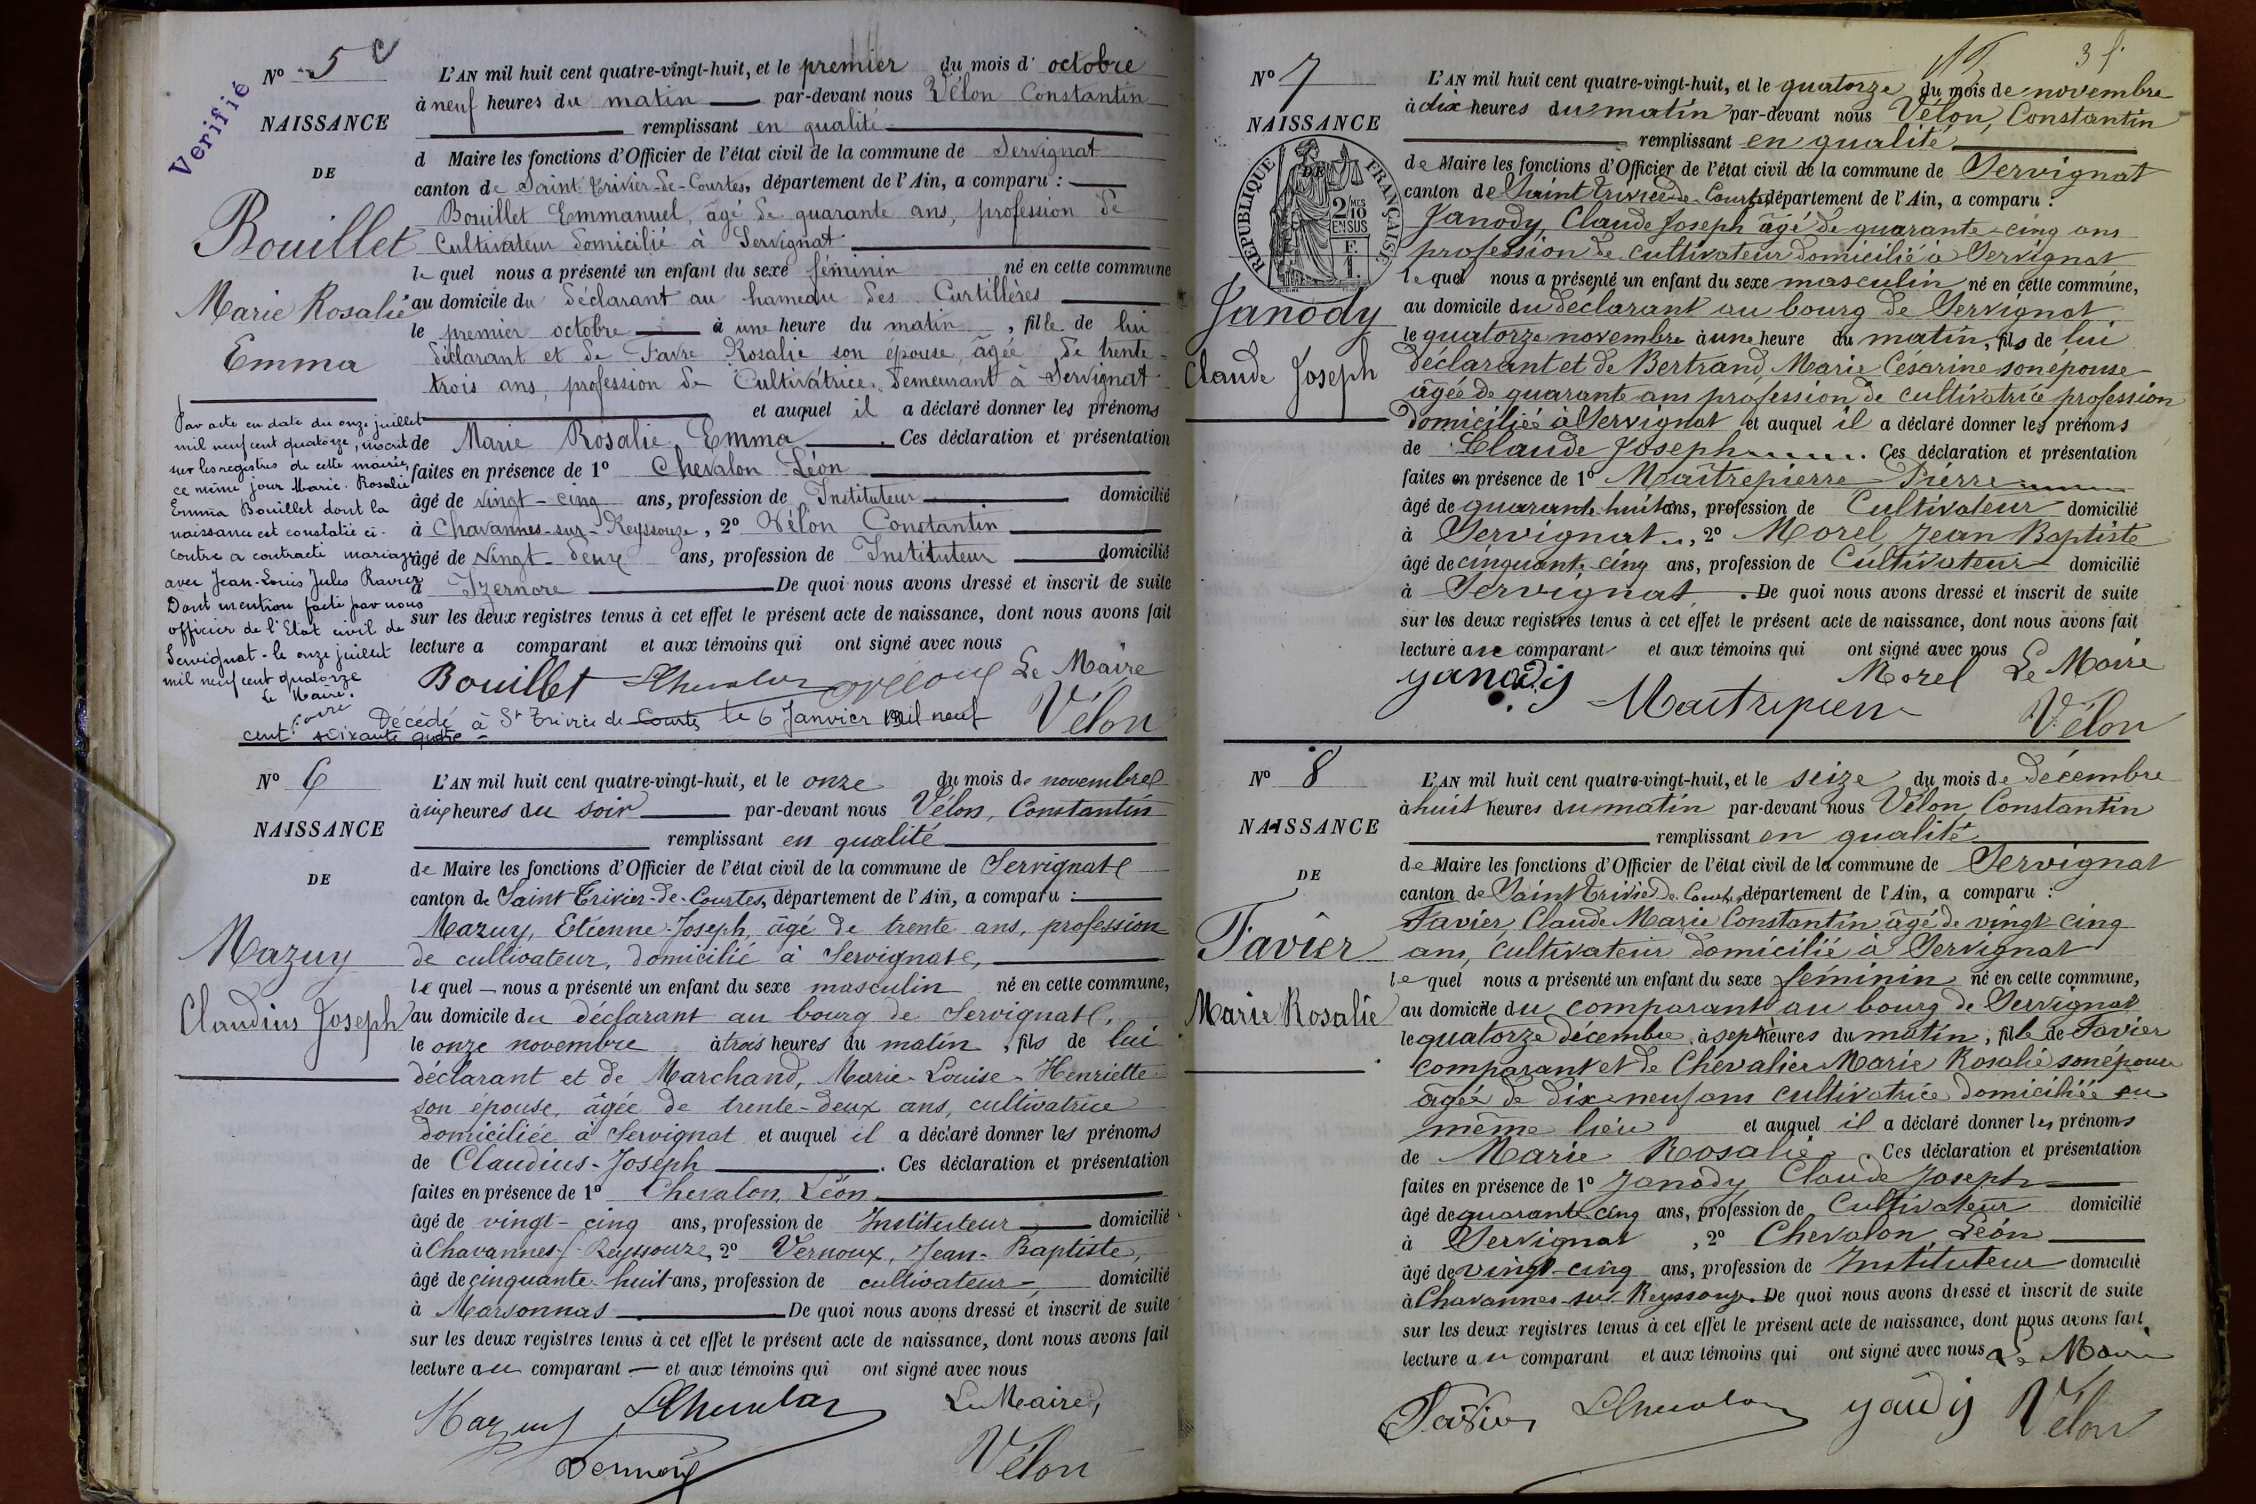 Verifié
N° 5
NAISSANCE
DE
Bouillet
Marie Rosalie
Emma
Par acte en date du onze juillet
mil neuf cent quatorze, inscrit
sur les registres de cette mairie,
ce même jour Marie-Rosalie
Emma Bouillet dont la
naissance est constatée ci-
contre a contracté mariage
avec Jean-Louis Jules
Dont mention faite par nous
officier de l'Etat civil de
Servignat - le onze juillet
mil neuf cent quatorze
Le Maire.
L'AN mil huit cent quatre-vingt-huit, et le premier du mois d' octobre
à neuf heures du matin par-devant nous Vélon Constantin
remplissant en qualité
d Maire les fonctions d'Officier de l'état civil de la commune de Servignat
canton de Saint-Trivier-de-Courtes, département de l'Ain, a comparu :
Bouillet Emmanuel, âgé de quarante ans, profession de
Cultivateur domicilié à Servignat
le quel nous a présenté un enfant du sexe féminin né en cette commune
au domicile du déclarant au hameau des Curtillères
le premier octobre à une heure du matin, fille de lui
déclarant et de Favre Rosalie son épouse, âgée de trente-
trois ans, profession de Cultivatrice, demeurant à Servignat
et auquel il a déclaré donner les prénoms
de Marie Rosalie Emma. Ces déclaration et présentation
faites en présence de 1° Chevalon Léon
âgé de vingt-cinq ans, profession de Instituteur domicilié
à Chavannes-sur-Reyssouze, 2° Vélon Constantin
âgé de vingt-deux ans, profession de Instituteur domicilié
à Izernore De quoi nous avons dressé et inscrit de suite
sur les deux registres tenus à cet effet le présent acte de naissance, dont nous avons fait
lecture a comparant et aux témoins qui ont signé avec nous
Bouillet LChevalon CVélon Le Maire
Vélon
Décédé à St Trivier de Courtes le 6 Janvier mil neuf
cent soixante quatre
N° 6
NAISSANCE
DE
Mazuy
Claudius Joseph
L'AN mil huit cent quatre-vingt-huit, et le onze du mois de novembre
à six heures du soir par-devant nous Vélon, Constantin
remplissant en qualité
de Maire les fonctions d'Officier de l'état civil de la commune de Servignat
canton de Saint-Trivier-de-Courtes, département de l'Ain, a comparu :
Mazuy, Etienne-Joseph, âgé de trente ans, profession
de cultivateur, domicilié à Servignat,
le quel nous a présenté un enfant du sexe masculin né en cette commune,
au domicile du déclarant au bourg de Servignat,
le onze novembre à trois heures du matin, fils de lui
déclarant et de Marchand, Marie-Louise-Henriette
son épouse, âgée de trente-deux ans, cultivatrice
domiciliée à Servignat et auquel il a déclaré donner les prénoms
de Claudius-Joseph. Ces déclaration et présentation
faites en présence de 1° Chevalon, Léon
âgé de vingt-cinq ans, profession de Instituteur domicilié
à Chavannes-s-Reyssouze, 2° Vernoux, Jean-Baptiste,
âgé de cinquante-huit ans, profession de cultivateur, domicilié
à Marsonnas De quoi nous avons dressé et inscrit de suite
sur les deux registres tenus à cet effet le présent acte de naissance, dont nous avons fait
lecture au comparant et aux témoins qui ont signé avec nous
Mazuy LChevalon Le Maire,
Vernoux Vélon
N° 7
NAISSANCE
DE
RÉPUBLIQUE FRANÇAISE
2 MES 10 EN SUS
F. 1.
Janody
Claude Joseph
L'AN mil huit cent quatre-vingt-huit, et le quatorze du mois de novembre
à dix heures du matin par-devant nous Vélon, Constantin
remplissant en qualité
de Maire les fonctions d'Officier de l'état civil de la commune de Servignat
canton de Saint Trivier-de-Courtes, département de l'Ain, a comparu :
Janody, Claude Joseph âgé de quarante-cinq ans
profession de cultivateur domicilié à Servignat
le quel nous a présenté un enfant du sexe masculin né en cette commune,
au domicile du déclarant au bourg de Servignat
le quatorze novembre à une heure du matin, fils de lui
déclarant et de Bertrand, Marie Césarine son épouse
âgée de quarante ans profession de cultivatrice profession
domiciliée à Servignat et auquel il a déclaré donner les prénoms
de Claude Joseph. Ces déclaration et présentation
faites en présence de 1° Maîtrepierre Pierre
âgé de quarante-huit ans, profession de Cultivateur domicilié
à Servignat, 2° Morel, Jean Baptiste
âgé de cinquante-cinq ans, profession de Cultivateur domicilié
à Servignat. De quoi nous avons dressé et inscrit de suite
sur les deux registres tenus à cet effet le présent acte de naissance, dont nous avons fait
lecture au comparant et aux témoins qui ont signé avec nous
yanody Maitrepierre Morel Le Maire
Vélon
N° 8
NAISSANCE
DE
Favier
Marie Rosalie
L'AN mil huit cent quatre-vingt-huit, et le seize du mois de décembre
à huit heures du matin par-devant nous Vélon, Constantin
remplissant en qualité
de Maire les fonctions d'Officier de l'état civil de la commune de Servignat
canton de Saint Trivier-de-Courtes, département de l'Ain, a comparu :
Favier, Claude Marie Constantin, âgé de vingt cinq
ans, cultivateur domicilié à Servignat
le quel nous a présenté un enfant du sexe féminin né en cette commune,
au domicile du comparant au bourg de Servignat
le quatorze décembre à sept heures du matin, fille de Favier
comparant et de Chevalier Marie Rosalie son épouse
âgée de dix neuf ans cultivatrice domiciliée au
même lieu et auquel il a déclaré donner les prénoms
de Marie Rosalie. Ces déclaration et présentation
faites en présence de 1° Janody Claude Joseph
âgé de quarante cinq ans, profession de Cultivateur domicilié
à Servignat, 2° Chevalon, Léon
âgé de vingt-cinq ans, profession de Instituteur domicilié
à Chavannes-sur-Reyssouze. De quoi nous avons dressé et inscrit de suite
sur les deux registres tenus à cet effet le présent acte de naissance, dont nous avons fait
lecture au comparant et aux témoins qui ont signé avec nous Le Maire
Favier LChevalon yanody Vélon